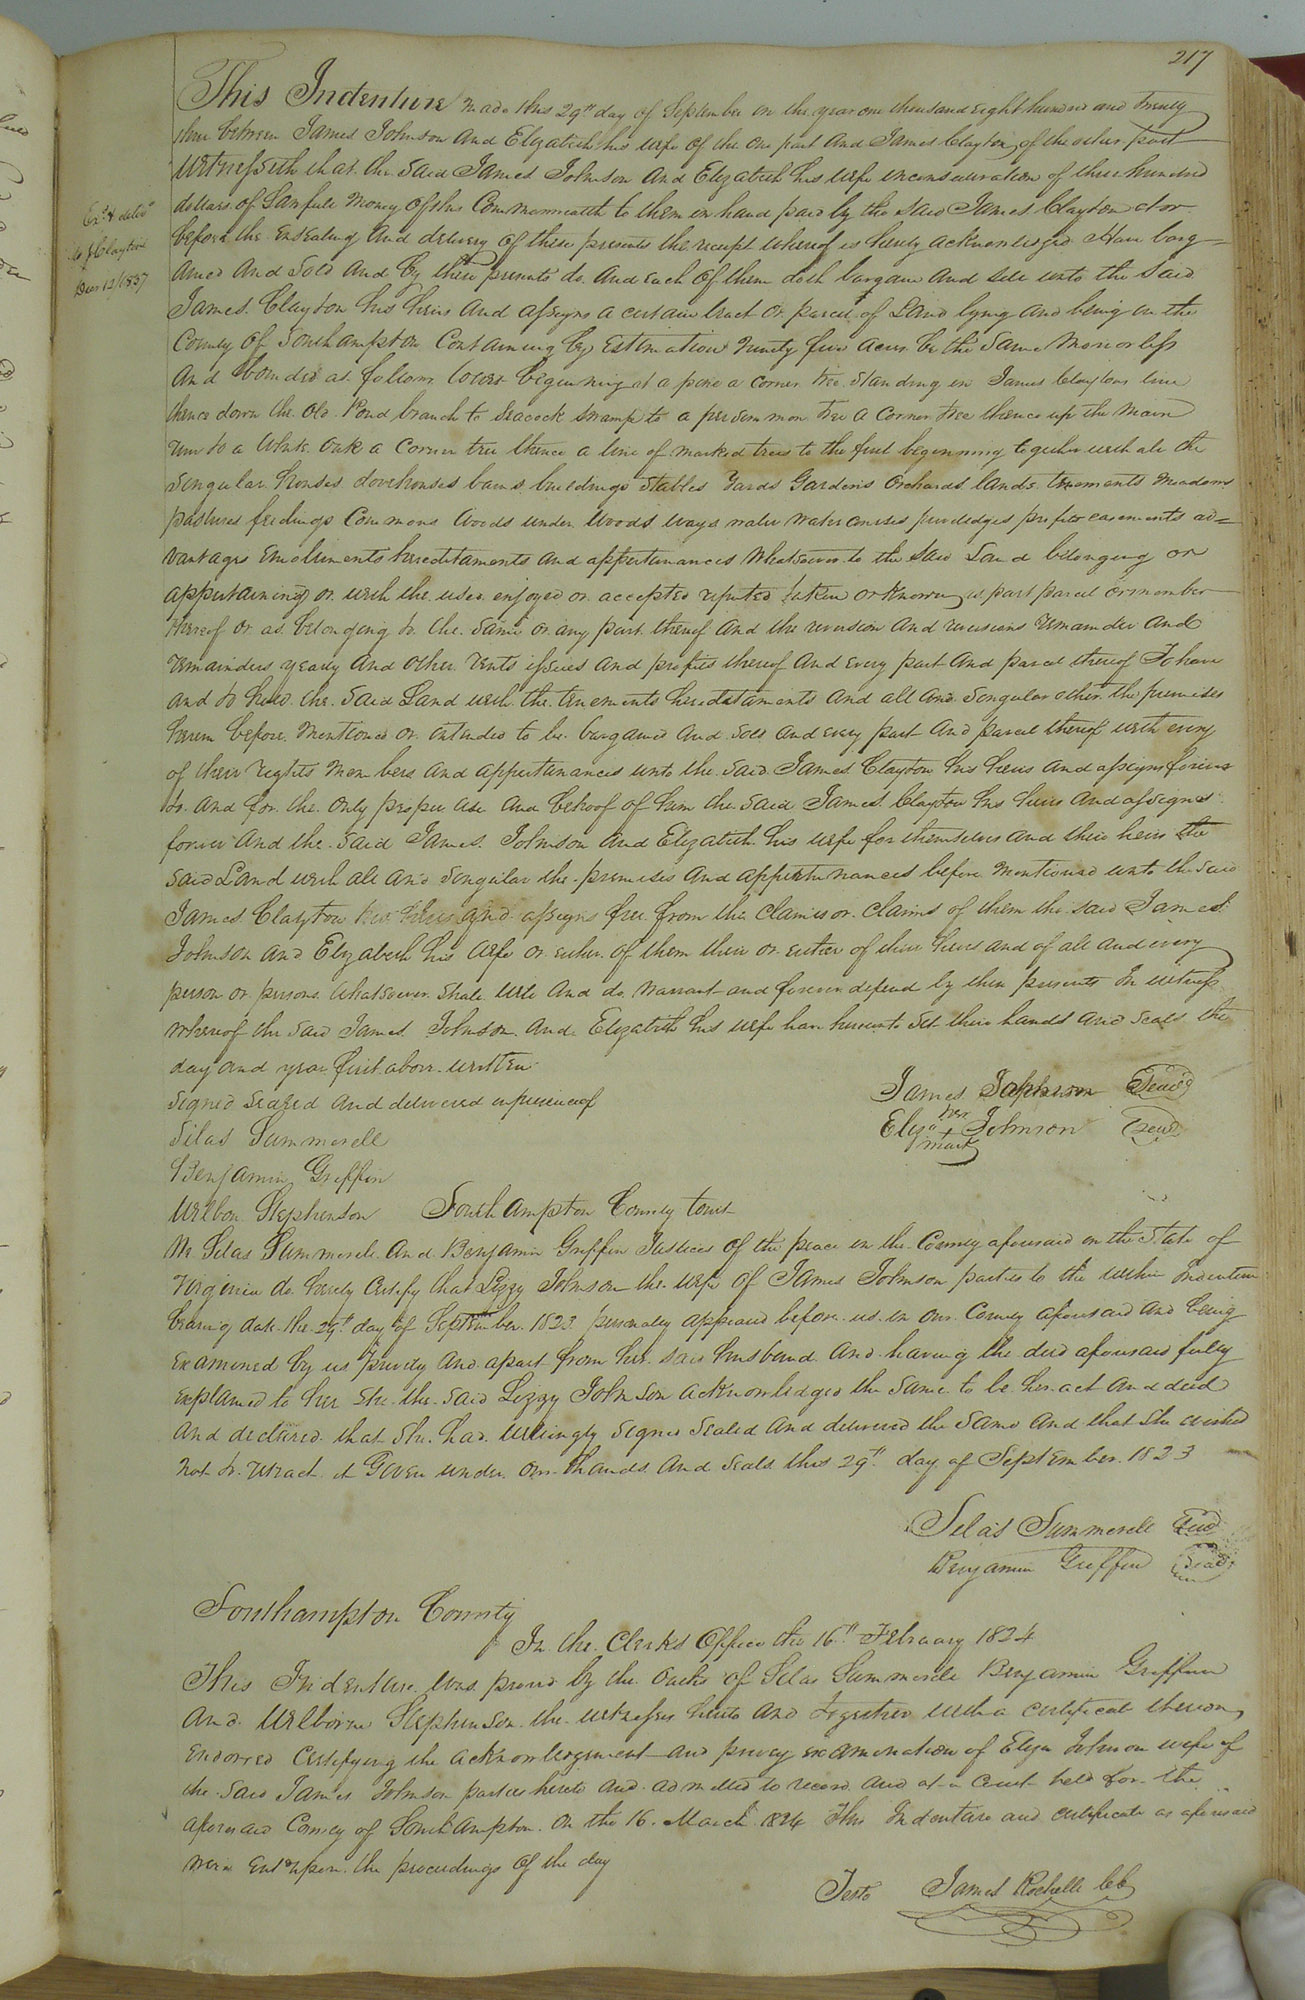 217
This Indenture made this 29th day of September in the year one thousand eight hundred and twenty
three between James Johnson and Elizabeth his wife of the one part and James Clayton of the other part
Witnesseth that the said James Johnson and Elizabeth his wife in consideration of three hundred
dollars of Lawfull Money of this Commonwealth to them in hand paid by the said James Clayton at or
before the ensealing and delivery of these presents the receipt whereof is hereby acknowledged Have barg=
ained and Sold and by these presents do and each of them doth bargain and sell unto the said
James Clayton his heirs and assigns a certain tract or parcel of Land lying and being in the
County of Southampton Containing by Estimation Ninety five acres be the Same More or less
And bounded as follows towit beginning at a pine a corner tree standing in James Claytons line
thence down the Old Pond branch to Seacock swamp to a persimmon tree a corner tree thence up the Main
run to a White Oak a corner tree thence a line of marked trees to the first beginning together with all the
Singular houses dovehouses barns buildings Stables Yards Gardens Orchards lands tenements Meadows
pastures feedings Commons Woods under Woods ways water Water courses priviledges profits easements ad=
vantages Emoluments hereditaments and appurtenances Whatsoever to the said Land belonging or
appurtaining or with the used enjoyed or accepted reputed taken or known as part parcel or member
thereof or as belonging to the same or any part thereof And the reversion and reversions remainder and
remainders yearly and other rents issues and profits thereof and every part and parcel thereof To have
and to hold the said Land with the tenements hereditaments and all and singular other the premises
herein before mentioned or intended to be bargained and sold and every part and parcel thereof with every
of their rights Members and appurtenances unto the said James Clayton his heirs and assigns forever
to and for the only proper use and behoof of him the said James Clayton his heirs and assigns
forever And the said James Johnson and Elizabeth his wife for themselves and their heirs the
Said Land with all and singular the premises and appurtenances before mentioned unto the said
James Clayton his heirs and assigns free from the claim or claims of them the said James
Johnson and Elizabeth his wife or either of them their or either of their heirs and of all and every
person or persons whatsoever shall will and do warrant and forever defend by these presents In witness
whereof the said James Johnson and Elizabeth his wife have hereunto set their hands and seals the
day and year first above written
Signed Sealed and delivered in presence of
James Johnson Seal
Silas Summerell
her
Eliza + Johnson Seal
mark
Benjamin Griffin
Wilbon Stephenson
Southampton County towit
We Silas Summerell And Benjamin Griffin Justices of the peace in the County aforesaid in the State of
Virginia do hereby certify that Lizzy Johnson the wife of James Johnson parties to the within Indenture
bearing date the 29th day of September 1823 personally appeared before us in our County aforesaid and being
examined by us privily and apart from her said husband and having the deed aforesaid fully
explained to her She the said Lizzy Johnson acknowledged the same to be her act and deed
and declared that She had willingly signed sealed and delivered the same and that she wished
not to retract it Given under our hands and seals this 29th day of September 1823
Silas Summerell Seal
Benjamin Griffin Seal
Southampton County
In the Clerks Office the 16th February 1824
This Indenture was proved by the oaths of Silas Summerell Benjamin Griffin
And Wilborn Stephenson the witnesses hereto and together with a certificate thereon
Endorsed Certifying the acknowledgement and privy examination of Eliza Johnson wife of
the said James Johnson parties hereto and admitted to record and at a Court held for the
aforesaid County of Southampton on the 16 March 1824 This Indenture and certificate as aforesaid
were Entd upon the proceedings of the day
Teste James Rochelle CC
Exd & deld
to J Clayton
Decr 12 1837